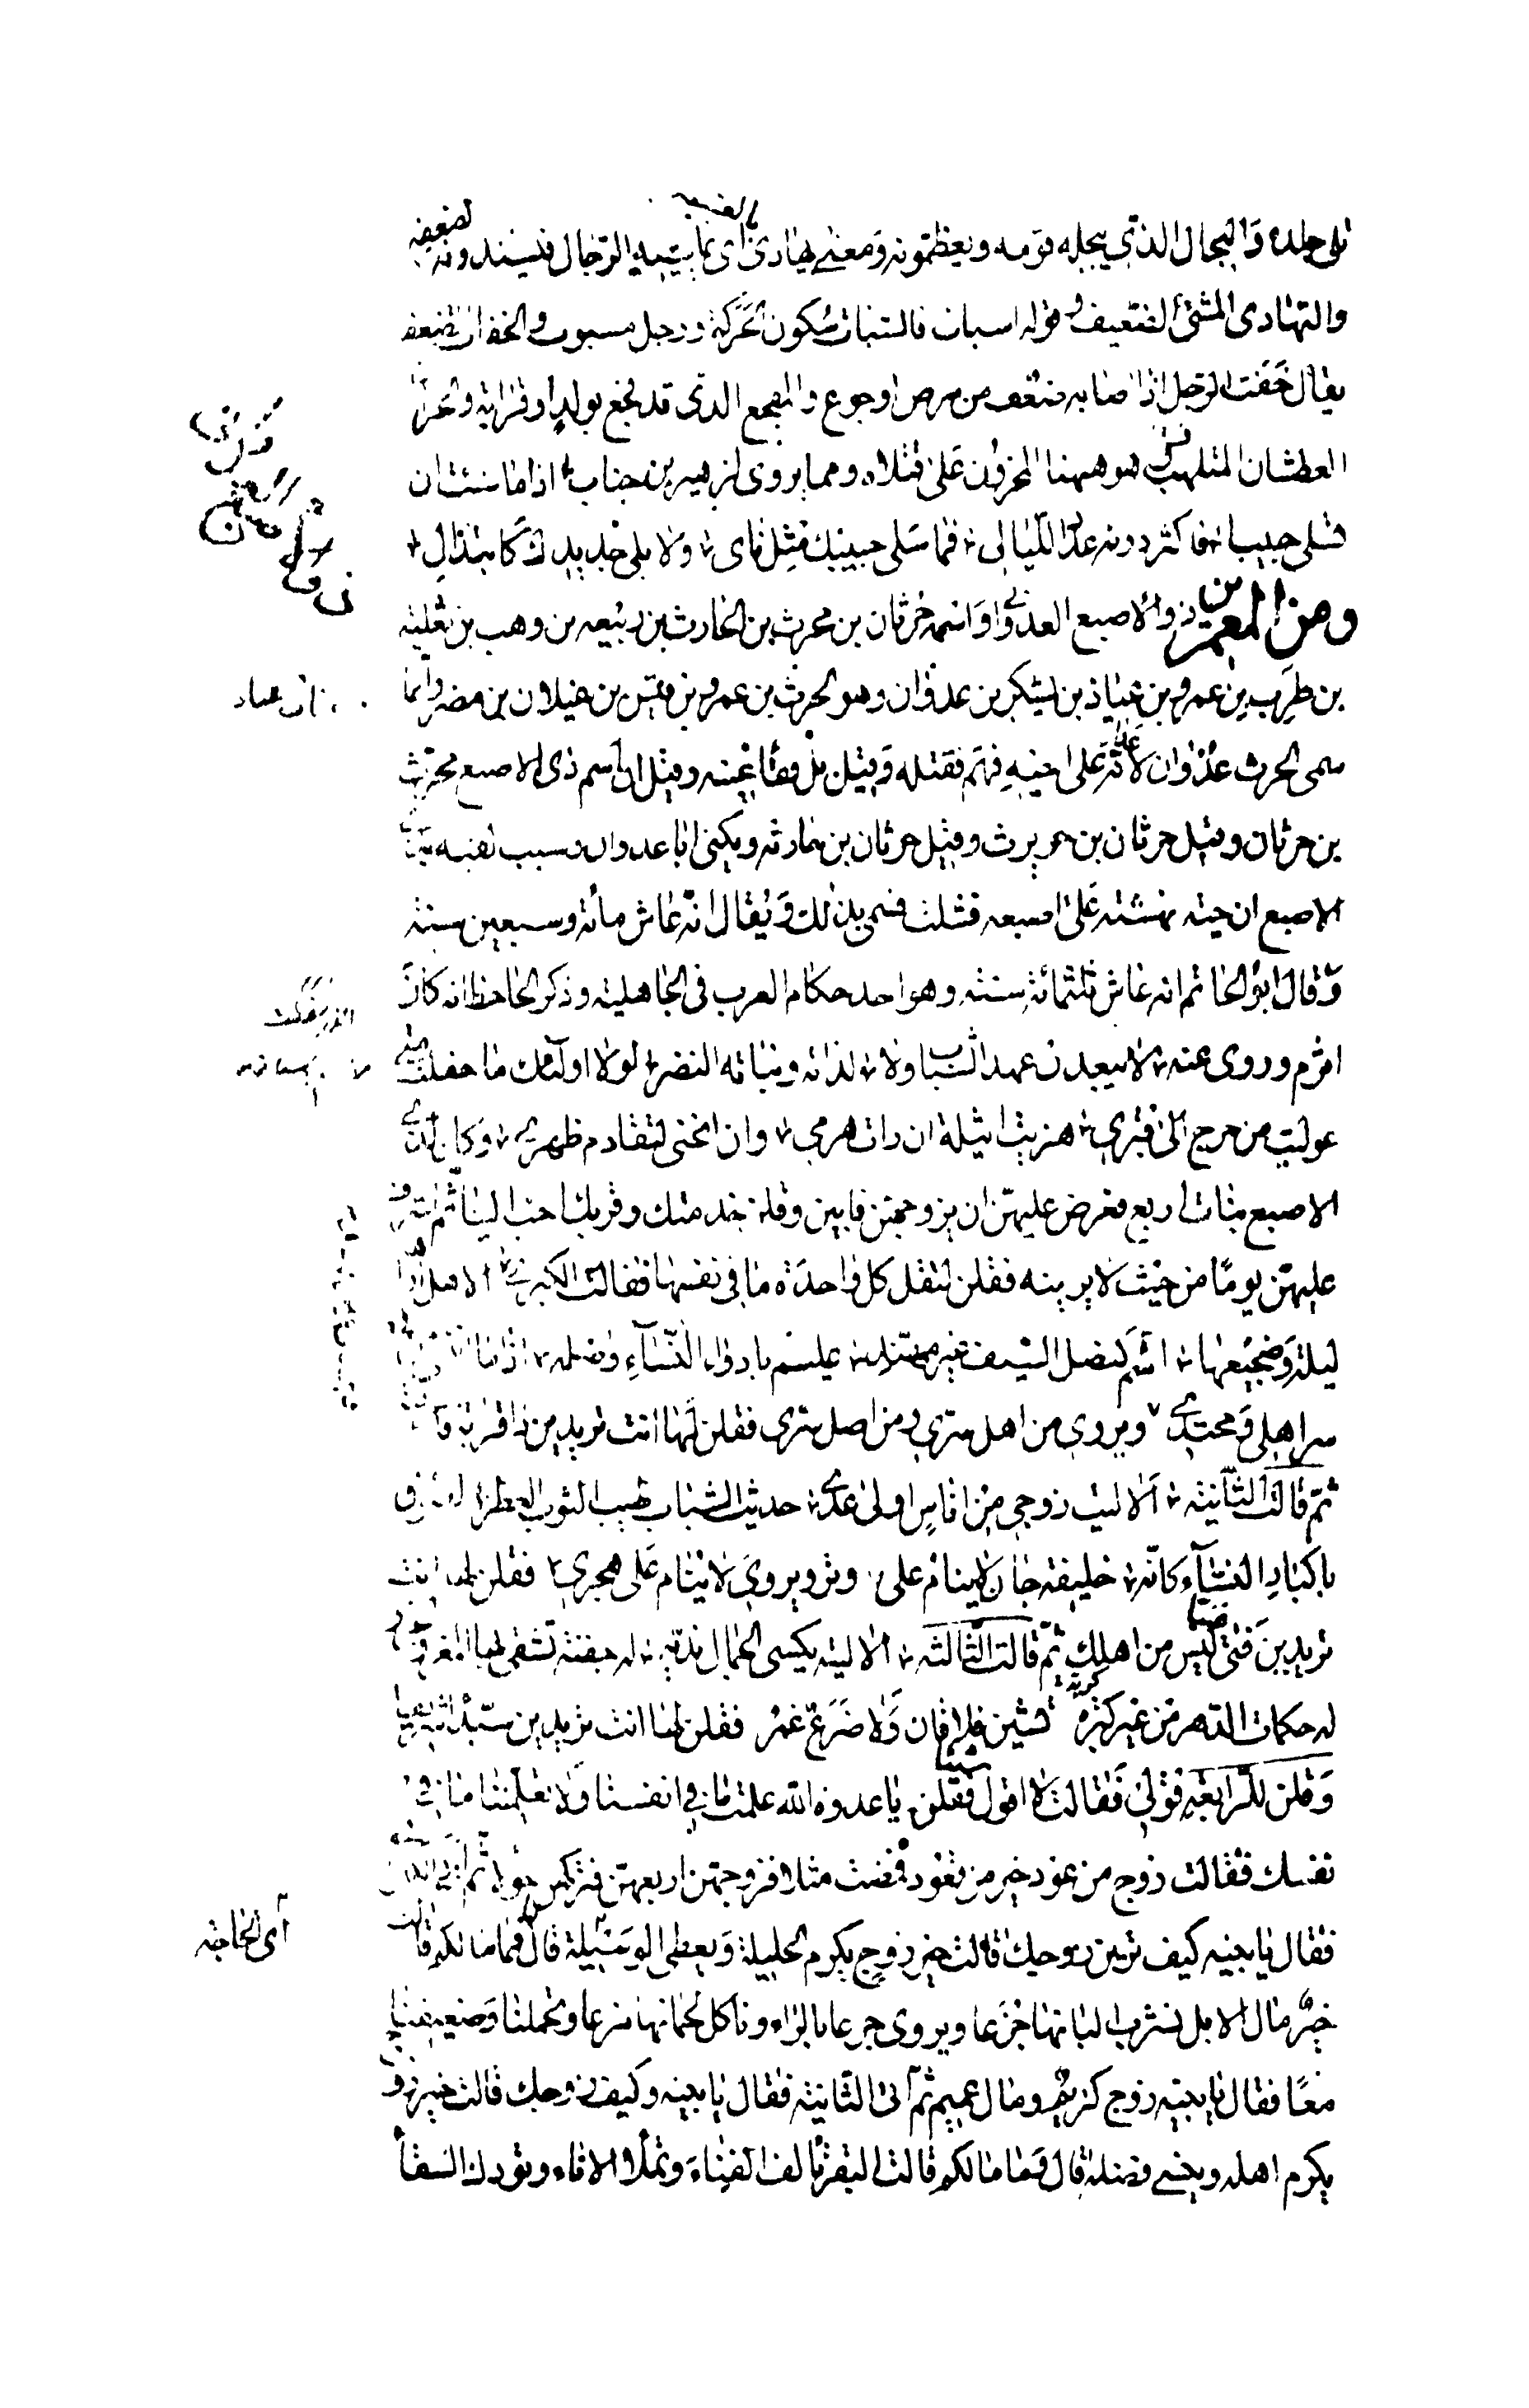 على جلده والبجال الذي يبجله قومه ويعظمونه ومعنى يهادى بالعشية اى تماشيه الرجال فيسندونه لضعفه
والتهادى المشى الضعيف وقوله اسبات فالسبات سكون الحركة ورجل مسبوت والخفات الضعف
يقال خفت الرجل اذا اصابه ضعف من مرض او جوع والمفجع الذى قد فجع بولد او قرابة والحران
العطشان الملتهب وهو ههنا المحزون على قتلاه ومما يروى لزهير بن جناب اذا ما شئت ان
تسلى حبيبا فاكثر دونه عدد الليالى فما سلى حبيبك مثل ناى ولا بلى جديدك كابتذال
ومن المعمرين ذو الاصبع العدوانى واسمه حرثان بن محرث بن الحارث بن ربيعه بن وهب بن ثعلبة
بن ظرب بن عمرو بن عياذ بن يشكر بن عدوان وهو الحرث بن عمرو بن قيس بن عيلان بن مضر وانما
سمى الحرث عدوان لانه عدا على اخيه فهم فقتله وقيل بل فقأ عينه وقيل ان اسم ذى الاصبع محرث
بن حرثان وقيل حرثان بن حويرث وقيل حرثان بن حارثه ويكنى ابا عدوان وسبب لقبه بذى
الاصبع ان حية نهشته على اصبعه فشلت فسمى بذلك ويقال انه عاش مائة وسبعين سنة
وقال ابو الحاتم انه عاش ثلثمائة سنة وهو احد حكام العرب فى الجاهلية وذكر الجاحظ انه كان
اثرم وروى عنه لا يبعدن عهد الشباب ولا لذاته ونباته النضر لولا اولئك ما حفلت متى
عوليت من حرج الى قبرى هزئت اثيلة ان رات هرمى وان انحنى لتقادم ظهرى وكان لذى
الاصبع بنات اربع فعرض عليهن ان يزوجهن فابين وقلن خدمتك وقربك احب الينا ثم اشرف
عليهن يوما من حيث لا يرينه فقلن لتقل كل واحدة ما فى نفسها فقالت الكبرى الا هل اراها
ليلة وضجيعها اشم كنصل السيف غير مهند عليم بادواء النساء واصله اذا ما
سر اهلى ومحتدى ويروى من اهل سرى ومن اصل سرى فقلن لها انت تريدين ذا قرابة
ثم قالت الثانية الا ليت زوجى من اناس اولى عدى حديث الشباب طيب الثوب والعطر
باكباد النساء كانه خليفة جان لا ينام على وتر ويروى لا ينام على هجرى فقلن لها انت
تريدين فتى ليس من اهلك ثم قالت الثالثة الا ليته يكسى الجمال نديه له جفنة تشقى بها
له حكمات الدهر من غير كبرة تشين فلا فان ولا ضرع غمر فقلن لها انت تريدين سيدا شريفا
وقلن للرابعة قولى فقالت لا اقول شيئا فقلن يا عدوة الله علمت ما فى انفسنا ولا تعلمينا ما فى
نفسك فقالت زوج من عود خير من قعود فمضت مثلا فزوجهن اربعهن فتركهن حولا ثم اتى
فقال يا بنيه كيف ترين زوجك قالت خير زوج يكرم الحليلة ويعطى الوسيلة قال فما مالكم قالت
خير مال الابل نشرب البانها جزعا ويروى جرعا بالراء وناكل لحمانها مزعا وتحملنا وضعيفنا
معا فقال يا بنيه زوج كريم ومال عميم ثم اتى الثانية فقال يا بنيه وكيف زوجك قالت خير زوج
يكرم اهله وينسى فضله قال فما مالكم قالت البقر تالف الفناء وتملأ الاناء وتودك السقاء
اى الحاجة